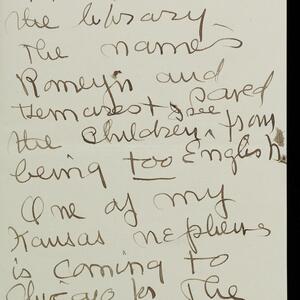 the library
The names
Romeyn and
Demarest saved
the children from
being too English.
One of my
Kansas nephews
is coming to
Chicago for the